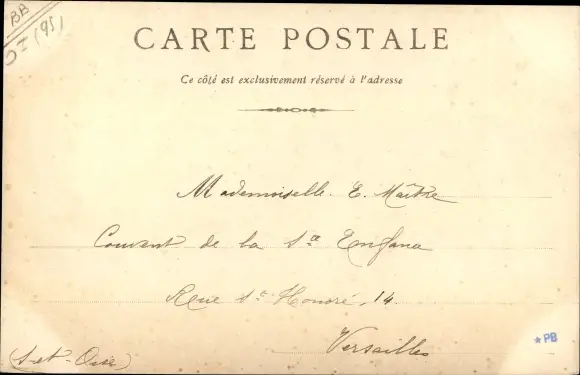 BB
CARTE POSTALE
Ce côté est exclusivement réservé à l'adresse
Mademoiselle E. Maître
Couvent de la Ste Enfance
Rue St Honoré, 14.
Versailles
(S-et-Oise)
*PB